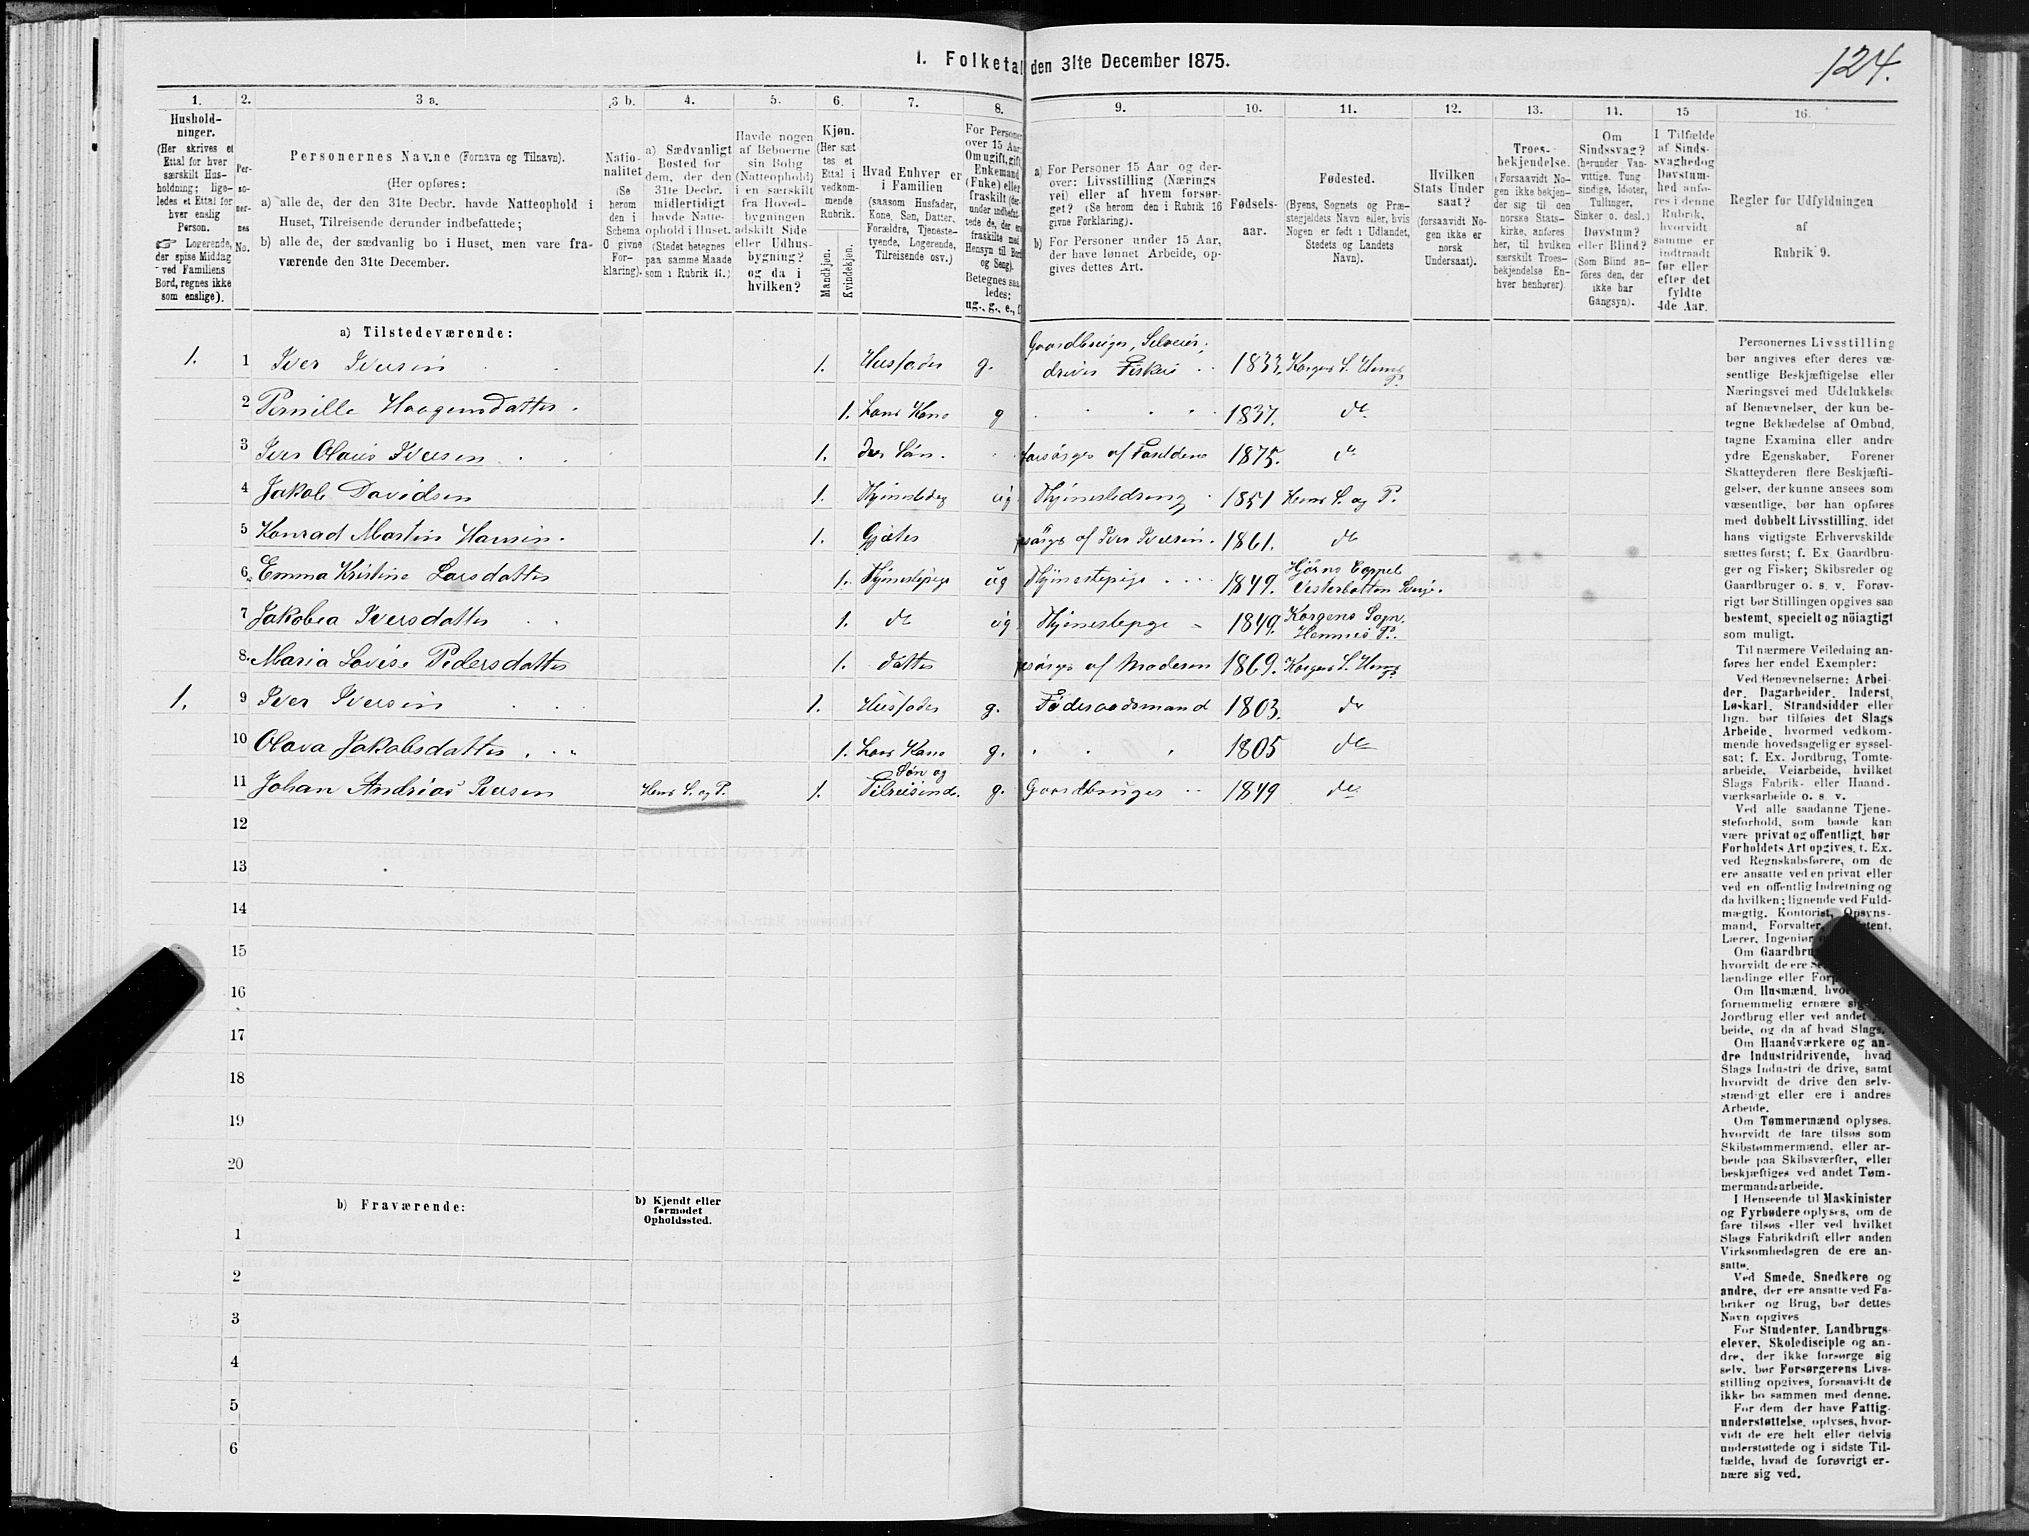 1. Folketal den 31te December 1875.
124.
1. 2. 3 a. 3 b. 4. 5. 6. 7. 8. 9. 10. 11. 12. 13. 14. 15 16.
Hushold-
ninger.
(Her skrives et
Ettal for hver
særskilt Hus-
holdning; lige-
ledes et Ettal for
hver enslig
Person.
☞ Logerende,
der spise Middag
ved Familiens
Bord, regnes ikke
som enslige).
Per-
so-
ner-
nes
No.
Personernes Navne (Fornavn og Tilnavn).
(Her opføres:
a) alle de, der den 31te Decbr. havde Natteophold i
Huset, Tilreisende derunder indbefattede;
b) alle de, der sædvanlig bo i Huset, men vare fra-
værende den 31te December.
Natio-
nalitet
(Se
herom
den i
Schema
O givne
For-
klaring).
a) Sædvanligt
Bosted for
dem, der den
31te Decbr.
midlertidigt
havde Natte-
ophold i Huset.
(Stedet betegnes
paa samme Maade
som i Rubrik 11.)
Havde nogen
af Beboerne
sin Bolig
(Natteophold)
i en særskilt
fra Hoved-
bygningen
adskilt Side
eller Udhus-
bygning?
og da i
hvilken?
Kjøn.
(Her sæt-
tes et
Ettal i
vedkom-
mende
Rubrik.
Mandkjøn.
Kvindekjøn.
Hvad Enhver er
i Familien
(saasom Husfader,
Kone, Søn, Datter,
Forældre, Tjeneste-
tyende, Logerende,
Tilreisende osv.)
For Personer
over 15 Aar:
Om ugift, gift,
Enkemand
(Enke) eller
fraskilt (der-
under indbefat-
tede de, der ere
fraskilte med
Hensyn til Bord
og Seng).
Betegnes saa-
ledes:
ug., g., e., f.
a) For Personer 15 Aar og der-
over: Livsstilling (Nærings-
vei) eller af hvem forsør-
get? (Se herom den i Rubrik 16
givne Forklaring).
b) For Personer under 15 Aar,
der have lønnet Arbeide, op-
gives dettes Art.
Fødsels-
aar.
Fødested.
(Byens, Sognets og Præ-
stegjeldets Navn eller, hvis
Nogen er født i Udlandet,
Stedets og Landets
Navn).
Hvilken
Stats Under-
saat?
(forsaavidt No-
gen ikke er
norsk
Undersaat).
Troes-
bekjendelse.
(Forsaavidt No-
gen ikke bekjen-
der sig til den
norske Stats-
kirke, anføres
her, til hvilken
særskilt Troes-
bekjendelse En-
hver henhører).
Om
Sindssvag?
(herunder Van-
vittige, Tung-
sindige, Idioter,
Tullinger,
Sinker o. desl.)
Døvstum?
eller Blind?
(Som Blind an-
føres den, der
ikke har
Gangsyn).
I Tilfælde
af Sinds-
svaghed og
Døvstum-
hed anfø-
res i denne
Rubrik,
hvorvidt
samme er
indtraadt
før eller
efter det
fyldte
4de Aar.
Regler for Udfyldningen
af
Rubrik 9.
a) Tilstedeværende:
1. 1 Iver Iversen 1. Husfader g. Gaardbruger, Selveier, driver Fiskeri 1833. Korgen S. Hemnes P.
2 Pernille Haagensdatter 1. hans Kone g 1837. do
3 Iver Olaus Iversen 1. deres Søn forsørges af Forældrene 1875. do
4 Jakob Davidsen 1. Tjenestedreng ug Tjenestedreng 1851 Hemnes S. og P.
5 Konrad Martin Hansen 1. Gjæter forsørges af Iver Iversen 1861. do
6 Emma Kristine Larsdatter 1. Tjenestepige ug Tjenestepige 1849. Vesterbotten Sverige
7 Jakobea Iversdatter 1. do ug Tjenestepige 1849. Korgens Sogn, Hemnes P.
8 Maria Lovise Pedersdatter 1. datter forsørges af Moderen 1869. Korgen S. Hemnes P
1. 9 Iver Iversen 1. Husfader g. Føderaadsmand 1803. do
10 Olava Jakobsdatter 1. hans Kone g. 1805 do
11 Johan Andreas Iversen Hemnes S. og P. 1. Søn og Tilreisende g. Gaardbruger 1849 do
12
13
14
15
16
17
18
19
20
b) Fraværende:
b) Kjendt eller
formodet
Opholdssted.
1
2
3
4
5
6
Personernes Livsstilling
bør angives efter deres væ-
sentlige Beskjæftigelse eller
Næringsvei med Udelukkelse
af Benævnelser, der kun be-
tegne Beklædelse af Ombud,
tagne Examina eller andre
ydre Egenskaber. Forener
Skatteyderen flere Beskjæfti-
gelser, der kunne ansees som
væsentlige, bør han opføres
med dobbelt Livsstilling, idet
hans vigtigste Erhvervskilde
sættes først; f. Ex. Gaardbru-
ger og Fisker; Skibsreder og
Gaardbruger o. s. v. Forøv-
rigt bør Stillingen opgives saa
bestemt, specielt og nöiagtigt
som muligt.
Til nærmere Veiledning an-
føres her endel Exempler:
Ved Benævnelserne: Arbei-
der, Dagarbeider, Inderst,
Løskarl, Strandsidder eller
lign. bør tilføies det Slags
Arbeide, hvormed vedkom-
mende hovedsagelig er syssel-
sat; f. Ex. Jordbrug, Tomte-
arbeide, Veiarbeide, hvilket
Slags Fabrik- eller Haand-
værksarbeide o. s. v.
Ved alle saadanne Tjene-
steforhold, som baade kan
være privat og offentligt, bør
Forholdets Art opgives, t. Ex.
ved Regnskabsførere, om de
ere ansatte ved en privat eller
ved en offentlig Indretning og
da hvilken; lignende ved Fuld-
mægtig, Kontorist, Opsyns-
mand, Forvalter,
Lærer, Ingeniør
Om Gaardbru
hvorvidt de ere
lændinge eller
Om Husmænd,
fornemmelig ernære
Jordbrug eller ved andet
beide, og da af hvad Slags.
Om Haandværkere og an-
dre Industridrivende, hvad
Slags Industri de drive, samt
hvorvidt de drive den selv-
stændigt eller ere i andres
Arbeide.
Om Tømmermænd oplyses,
hvorvidt de fare tilsøs som
Skibstømmermænd, eller ar-
beide paa Skibsværfter, eller
beskjæftiges ved andet Tøm-
mermandsarbeide.
I Henseende til Maskinister
og Fyrbødere oplyses, om de
fare tilsøs eller ved hvilket
Slags Fabrikdrift eller anden
Virksomhedsgren de ere an-
satte.
Ved Smede, Snedkere og
andre, der ere ansatte ved Fa-
briker og Brug, bør dettes
Navn opgives
For Studenter, Landbrugs-
elever, Skoledisciple og an-
dre, der ikke forsørge sig
selv, bør Forsørgerens Livs-
stilling opgives, forsaavidt de
ikke bo sammen med denne.
For dem der have Fattig-
understøttelse, oplyses, hvor-
vidt de ere helt eller delvis
understøttede og i sidste Til-
fælde, hvad de forøvrigt er-
nære sig ved.